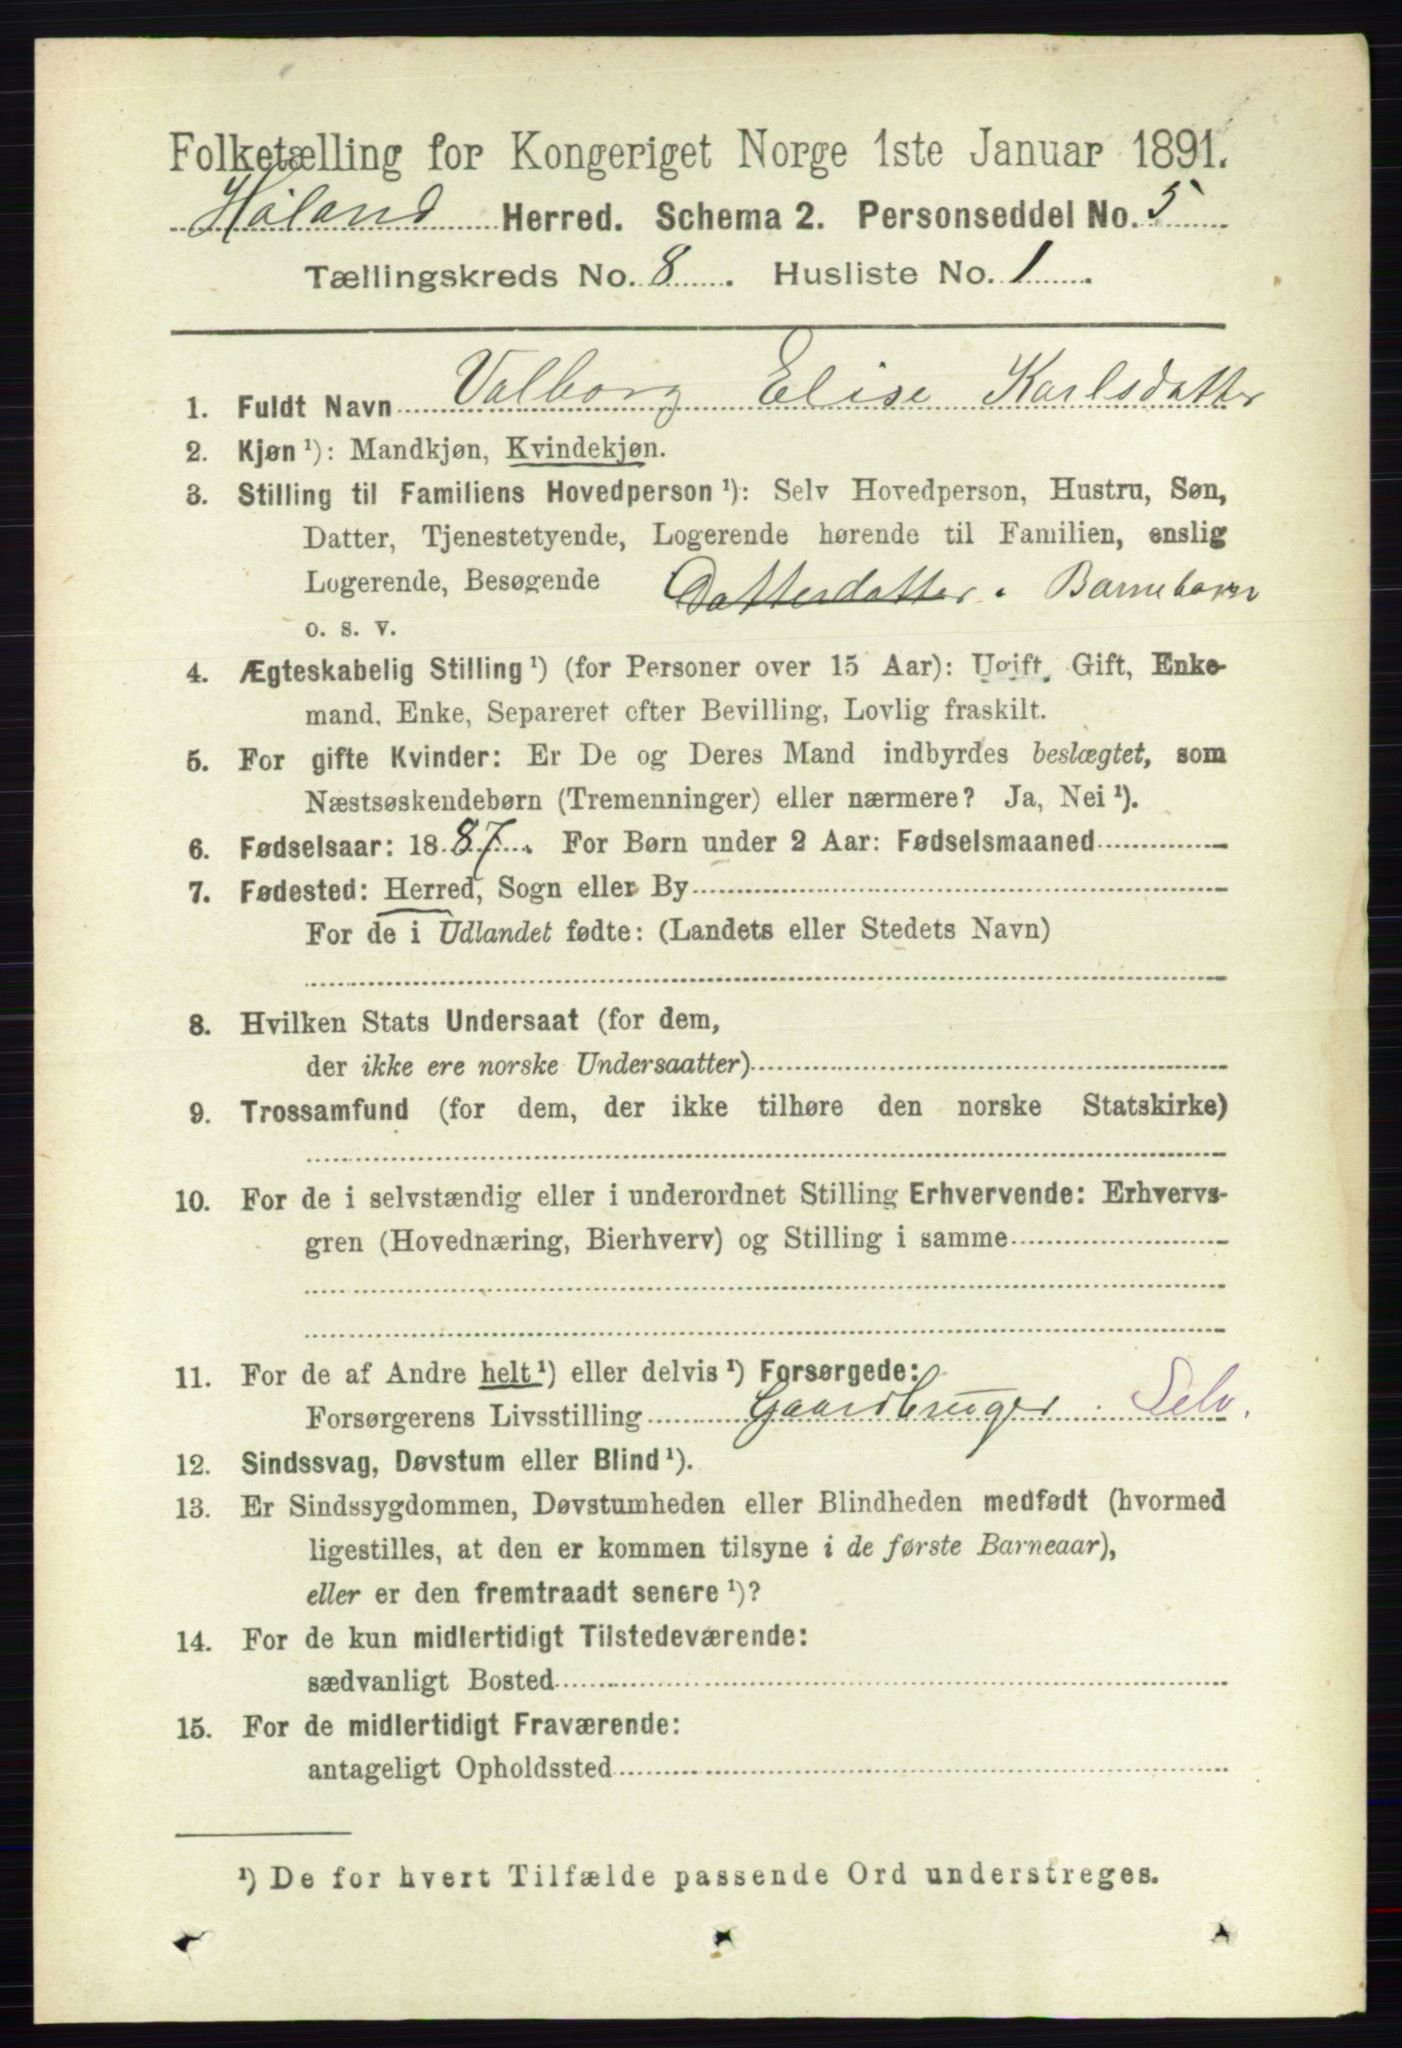 Folketælling for Kongeriget Norge 1ste Januar 1891.
Høland Herred. Schema 2. Personseddel No. 5
Tællingskreds No. 8. Husliste No. 1.
1. Fuldt Navn Valborg Elise Karlsdatter
2. Kjøn ¹): Mandkjøn, Kvindekjøn.
3. Stilling til Familiens Hovedperson ¹): Selv Hovedperson, Hustru, Søn,
Datter, Tjenestetyende, Logerende hørende til Familien, enslig
Logerende, Besøgende Datterdatter. Barnebarn
o. s. v.
4. Ægteskabelig Stilling ¹) (for Personer over 15 Aar): Ugift, Gift, Enke-
mand, Enke, Separeret efter Bevilling, Lovlig fraskilt.
5. For gifte Kvinder: Er De og Deres Mand indbyrdes beslægtet, som
Næstsøskendebørn (Tremenninger) eller nærmere? Ja, Nei ¹).
6. Fødselsaar: 1887. For Børn under 2 Aar: Fødselsmaaned
7. Fødested: Herred, Sogn eller By
For de i Udlandet fødte: (Landets eller Stedets Navn)
8. Hvilken Stats Undersaat (for dem,
der ikke ere norske Undersaatter)
9. Trossamfund (for dem, der ikke tilhøre den norske Statskirke)
10. For de i selvstændig eller i underordnet Stilling Erhvervende: Erhvervs-
gren (Hovednæring, Bierhverv) og Stilling i samme
11. For de af Andre helt ¹) eller delvis ¹) Forsørgede:
Forsørgerens Livsstilling Gaardbruger. Selv.
12. Sindssvag, Døvstum eller Blind ¹).
13. Er Sindssygdommen, Døvstumheden eller Blindheden medfødt (hvormed
ligestilles, at den er kommen tilsyne i de første Barneaar),
eller er den fremtraadt senere ¹)?
14. For de kun midlertidigt Tilstedeværende:
sædvanligt Bosted
15. For de midlertidigt Fraværende:
antageligt Opholdssted
¹) De for hvert Tilfælde passende Ord understreges.